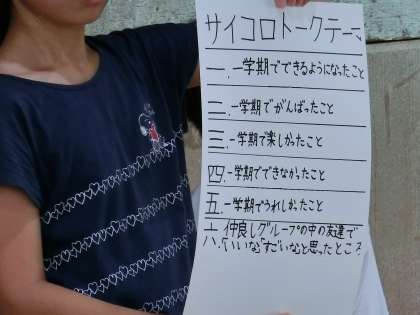 サイコロトークテーマ
一.一学期でできるようになったこと
二.一学期でがんばったこと
三.一学期で楽しかったこと
四.一学期でできなかったこと
五.一学期でうれしかったこと
六.仲良しグループの中の友達で
「いいな」「すごいな」と思ったところ